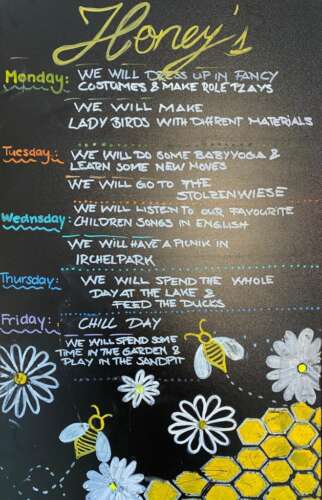 Honey's
Monday: WE WILL DRESS UP IN FANCY
COSTUMES & MAKE ROLE PLAYS
WE WILL MAKE
LADY BIRDS WITH DIFFRENT MATERIALS
Tuesday: WE WILL DO SOME BABYYOGA &
LEARN SOME NEW MOVES
WE WILL GO TO THE
STOLZENWIESE
Wednsday: WE WILL LISTEN TO OUR FAVOURITE
CHILDREN SONGS IN ENGLISH
WE WILL HAVE A PICNIK IN
IRCHELPARK
Thursday: WE WILL SPEND THE WHOLE
DAY AT THE LAKE &
FEED THE DUCKS
Friday: CHILL DAY
WE WILL SPEND SOME
TIME IN THE GARDEN &
PLAY IN THE SANDPIT